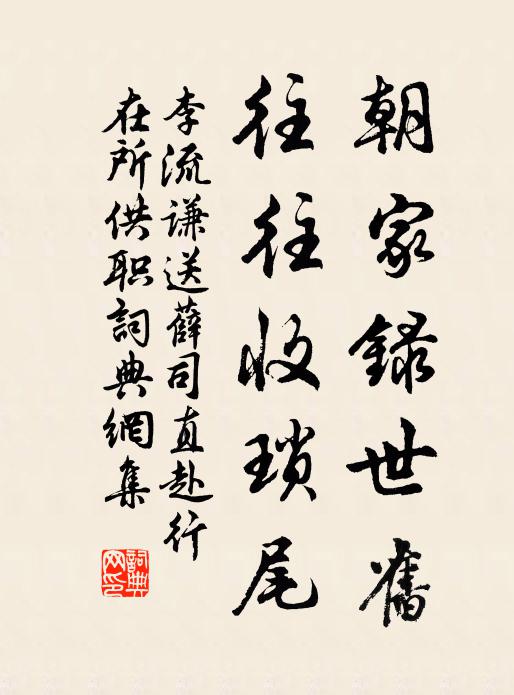 朝家録世舊
往往收瑣尾
李流謙送薛司直赴行
在所供职詞典網集
詞典网印